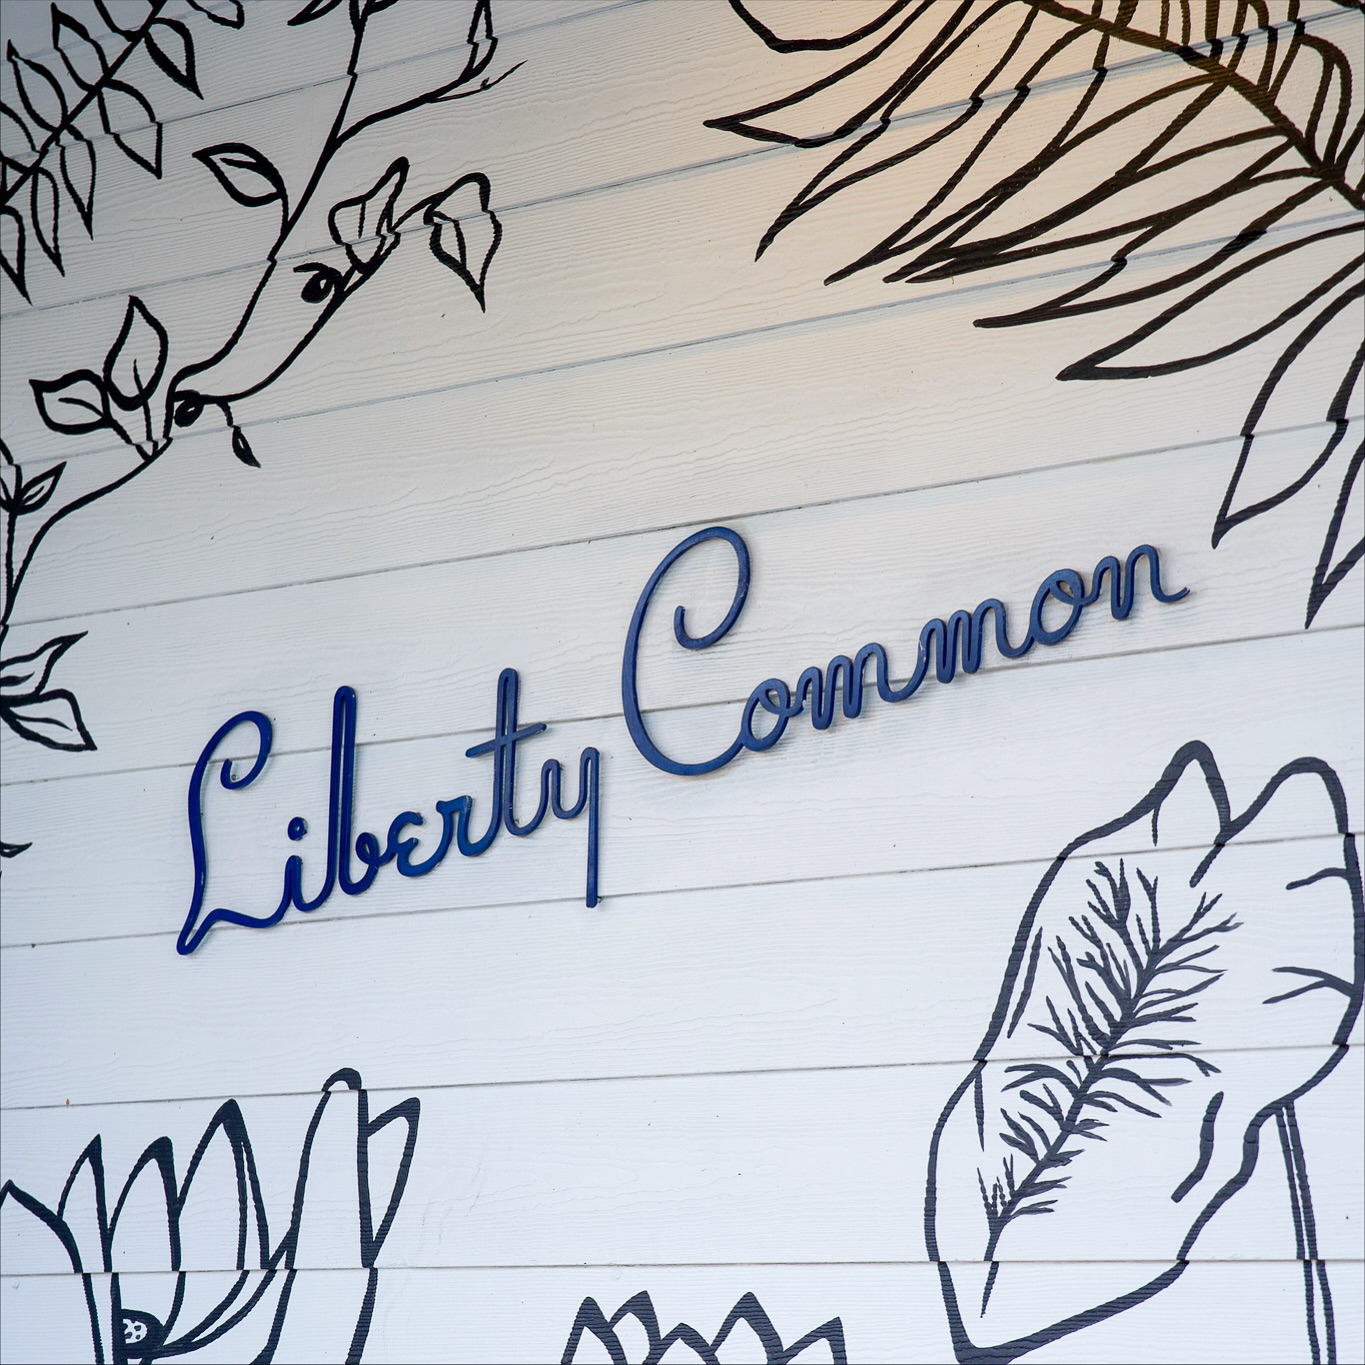 Liberty Common